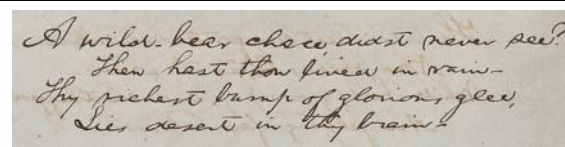 A wild-bear chace, didst never see?
Then hast thou lived in vain—
Thy richest bump of glorious glee,
Lies desert in thy brain—